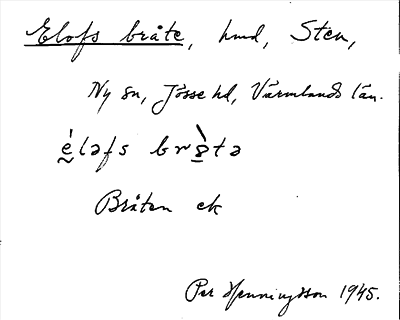 Elofs bråte, hmd, Sten,
Ny sn, Jösse hd, Värmlands län.
é̱ləfs brò̱tə
Bråten ek
Per Henningsson 1945.